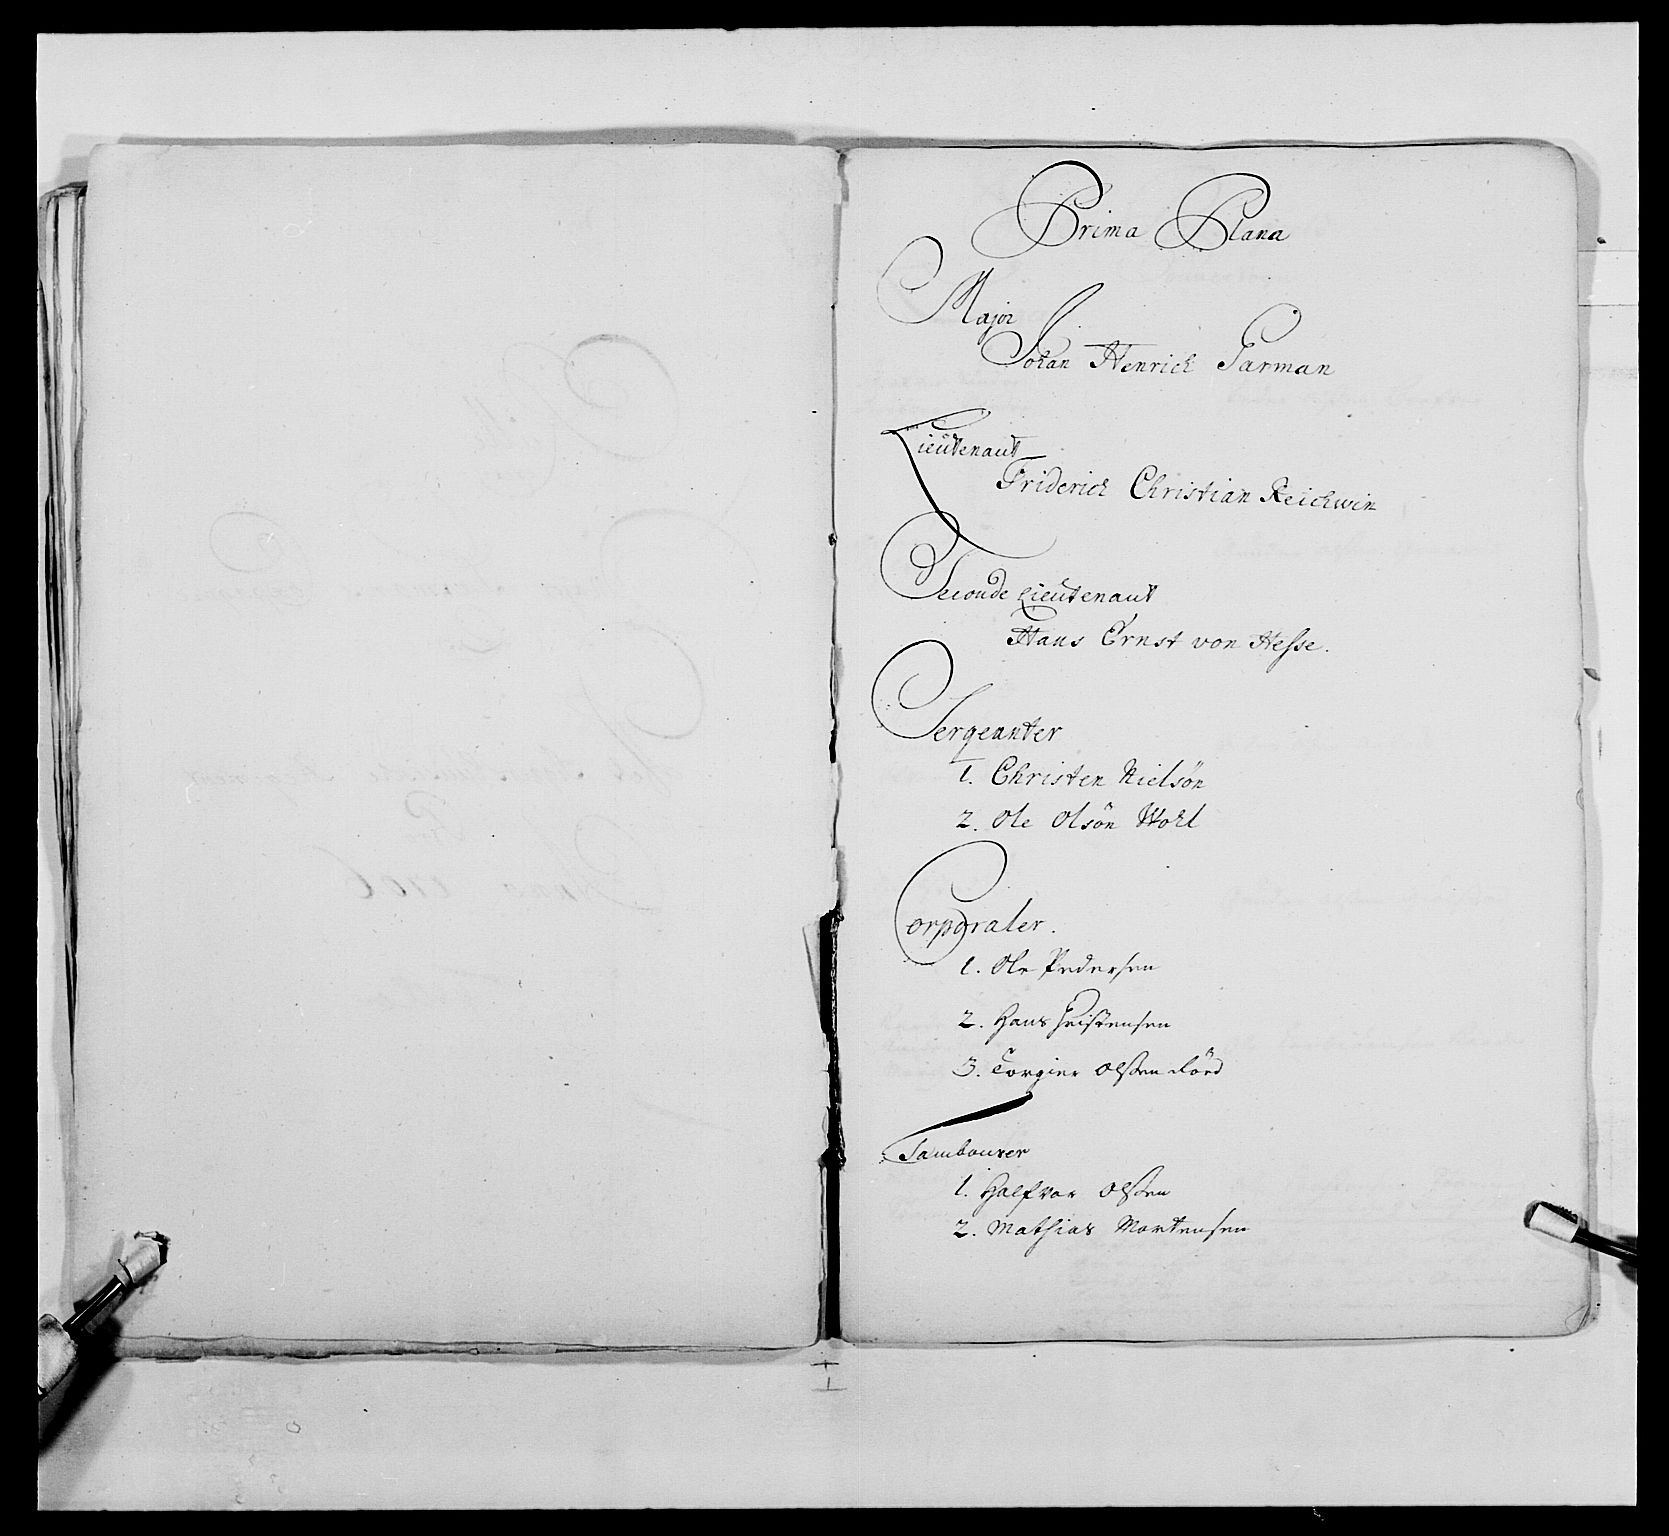 Prima Plana
Major
Johan Henrich Garman
Lieutenant
Friderich Christian Reichwin
Seconde Lieutenant
Hans Ernst von Hesse.
Sergeanter
1. Christen Nielsön
2. Ole Olsön Wohl
Corporaler.
1. Ole Pedersen
2. Hans Christensen
3. Torgier Olssen
Tambourer
1. Halfvor Olssen
2. Mathias Mortensen